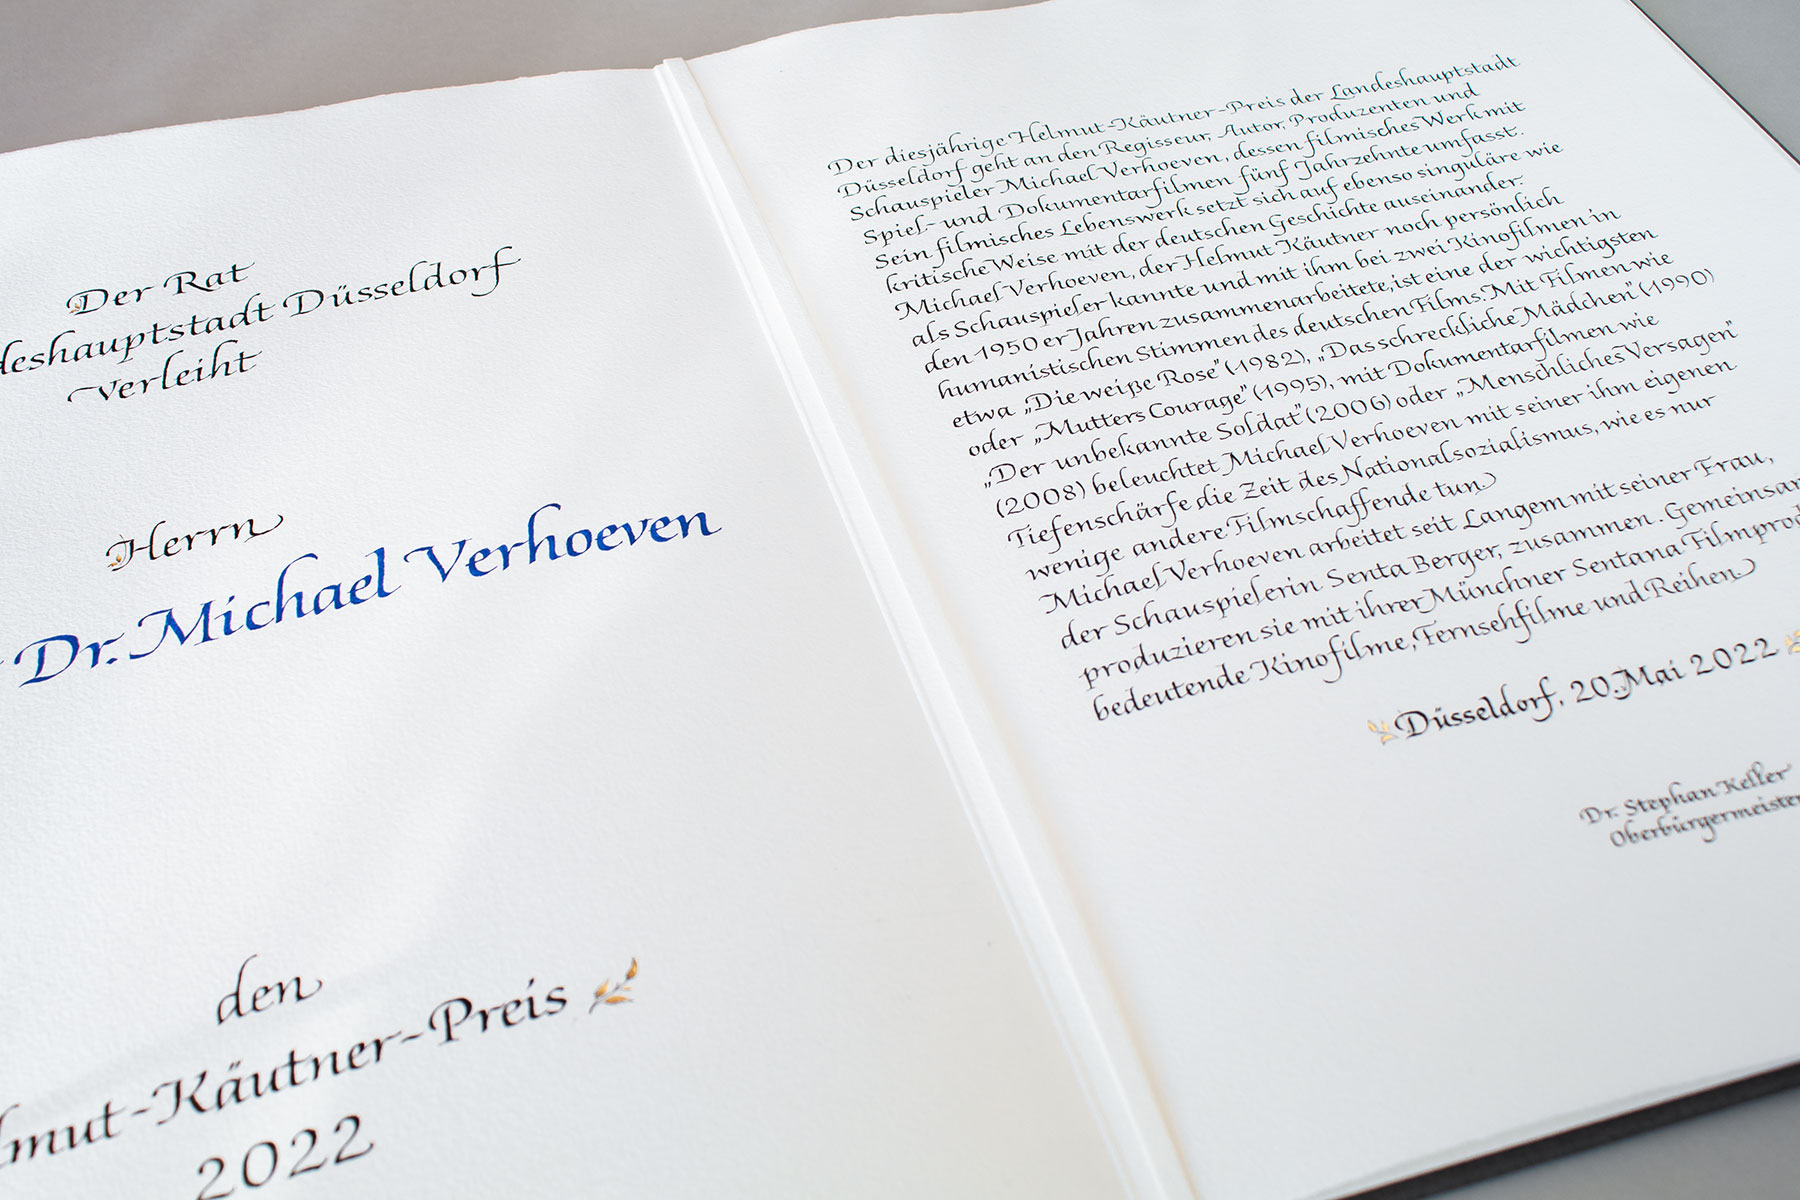 Der Rat
deshauptstadt Düsseldorf
verleiht
Herrn
Dr. Michael Verhoeven
den
lmut-Käutner-Preis
2022
Der diesjährige Helmut-Käutner-Preis der Landeshauptstadt
Düsseldorf geht an den Regisseur, Autor, Produzenten und
Schauspieler Michael Verhoeven, dessen filmisches Werk mit
Spiel- und Dokumentarfilmen fünf Jahrzehnte umfasst.
Sein filmisches Lebenswerk setzt sich auf ebenso singuläre wie
kritische Weise mit der deutschen Geschichte auseinander.
Michael Verhoeven, der Helmut Käutner noch persönlich
als Schauspieler kannte und mit ihm bei zwei Kinofilmen in
den 1950er Jahren zusammenarbeitete, ist eine der wichtigsten
humanistischen Stimmen des deutschen Films. Mit Filmen wie
etwa „Die weiße Rose" (1982), „Das schreckliche Mädchen" (1990)
oder „Mutters Courage" (1995), mit Dokumentarfilmen wie
„Der unbekannte Soldat" (2006) oder „Menschliches Versagen"
(2008) beleuchtet Michael Verhoeven mit seiner ihm eigenen
Tiefenschärfe die Zeit des Nationalsozialismus, wie es nur
wenige andere Filmschaffende tun
Michael Verhoeven arbeitet seit Langem mit seiner Frau,
der Schauspielerin Senta Berger, zusammen. Gemeinsam
produzieren sie mit ihrer Münchner Sentana Filmprod
bedeutende Kinofilme, Fernsehfilme und Reihen
Düsseldorf, 20. Mai 2022
Dr. Stephan Keller
Oberbürgermeister